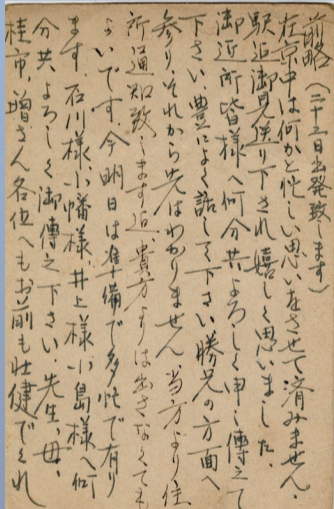 前略(二十三日出発致します)
在京中は何かと忙しい思いをさせて済みません.
駅迄御見送り下され嬉しく思いました.
御近所皆様へ何分共よろしく申し傳えて
下さい.豊によく話して下さい勝兄の方面へ
参り.それから先はわかりません 当方より住
所通知致します迄、貴方よりは出さなくても
よいです.今明日は準備で多忙で有り
ます.石川様.小幡様.井上様.小島様へ何
分共よろしく御傳え下さい.先生、母、
桂市、増さん各位へもお前も壮健でくれ